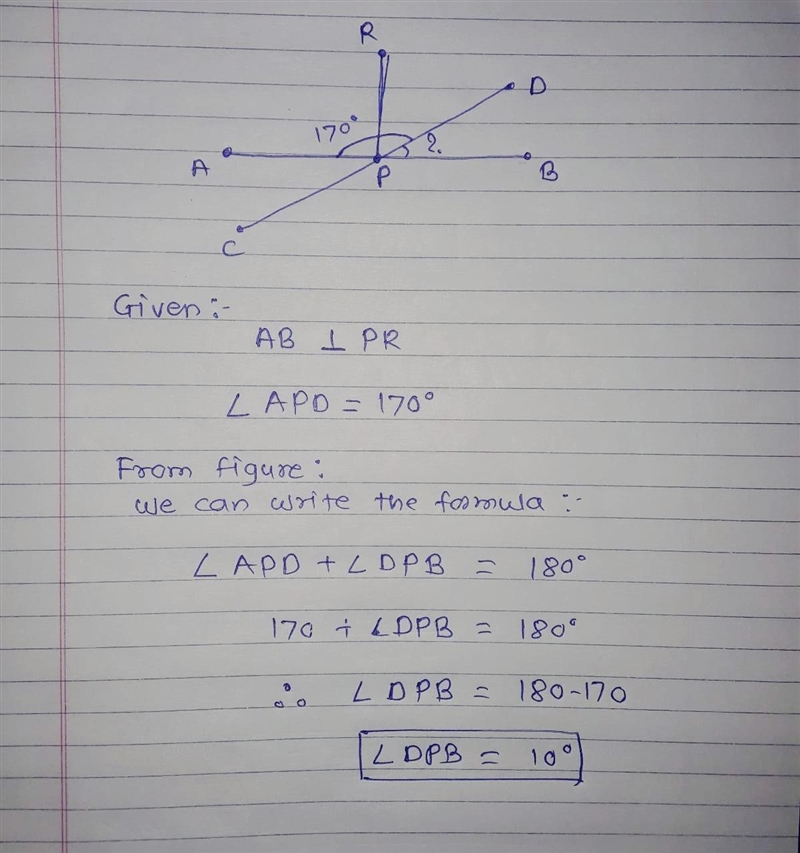 R
D
170°
?.
A
P
B
C
Given :-
AB ⊥ PR
∠ APD = 170°
From figure :
we can write the formula :-
∠ APD + ∠ DPB = 180°
170 + ∠DPB = 180°
∴ ∠ DPB = 180-170
∠ DPB = 10°